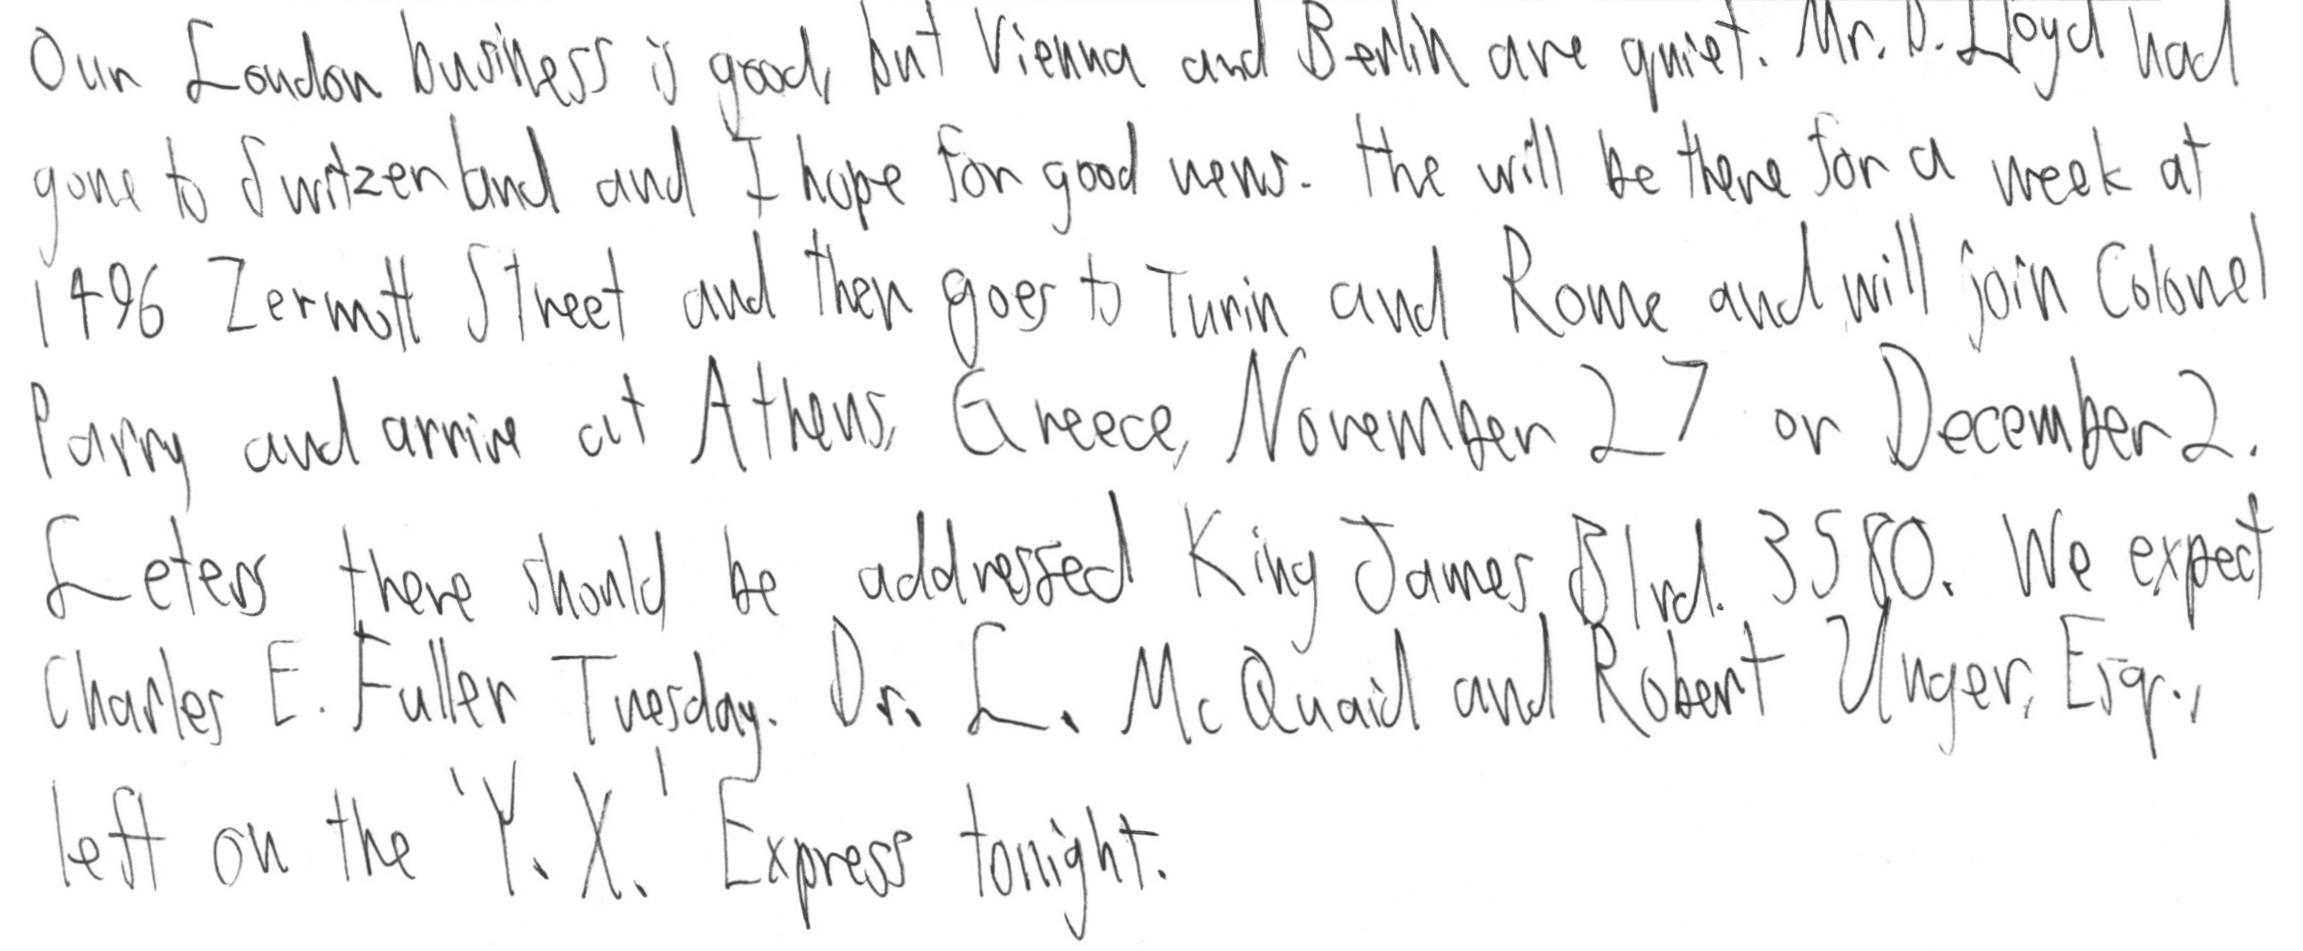 Our London business is good, but Vienna and Berlin are quiet. Mr. D. Lloyd had
gone to Switzerland and I hope for good news. the will be there for a week at
1496 Zermott Street and then goes to Turin and Rome and will join Colonel
Parry and arrive at Athens, Greece, November 27 or December 2.
Leters there should be addressed King James Blvd. 3580. We expect
Charles E. Fuller Tuesday. Dr. L. McQuaid and Robert Unger, Esq.,
left on the 'Y.X.' Express tonight.